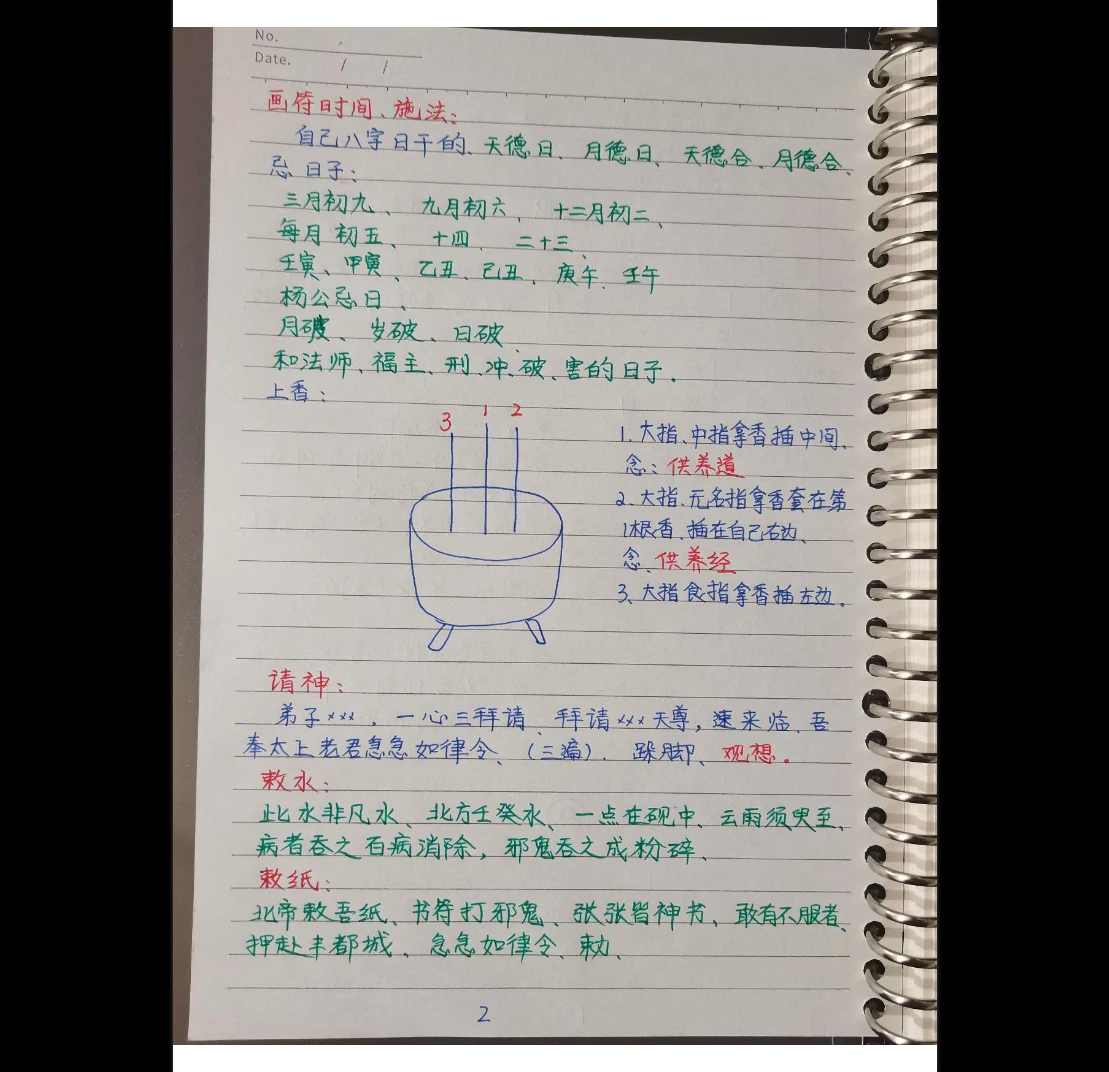 No.
Date. / /
画符时间、施法：
自己八字日干的、天德日、月德日、天德合、月德合、
忌日子：
三月初九、九月初六、十二月初二、
每月初五、十四、二十三、
壬寅、甲寅、乙丑、己丑、庚午、壬午
杨公忌日、
月破、岁破、日破、
和法师、福主、刑、冲、破、害的日子.
上香：
3 1 2
1.大指、中指拿香插中间、
念：供养道
2、大指、无名指拿香套在第
1根香、插在自己右边、
念、供养经
3、大指食指拿香插左边。
请神：
弟子×××，一心三拜请、拜请×××天尊，速来临、吾
奉太上老君急急如律令、（三遍）、跺脚、观想。
敕水：
此水非凡水、北方壬癸水、一点在砚中、云雨须臾至、
病者吞之百病消除，邪鬼吞之成粉碎、
敕纸：
北帝敕吾纸、书符打邪鬼、张张皆神书，敢有不服者、
押赴丰都城、急急如律令、敕、
2